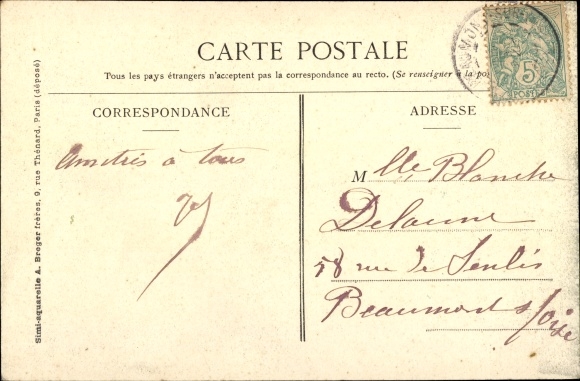 CARTE POSTALE
Tous les pays étrangers n'acceptent pas la correspondance au recto. (Se renseigner à la pos
CORRESPONDANCE
ADRESSE
Amitiés à tous
Mlle Blanche
Delaune
58 rue de Senlis
Beaumont s/oise
5c
POSTES
Simi-aquarelle A. Breger frères, 9, rue Thénard, Paris (déposé)